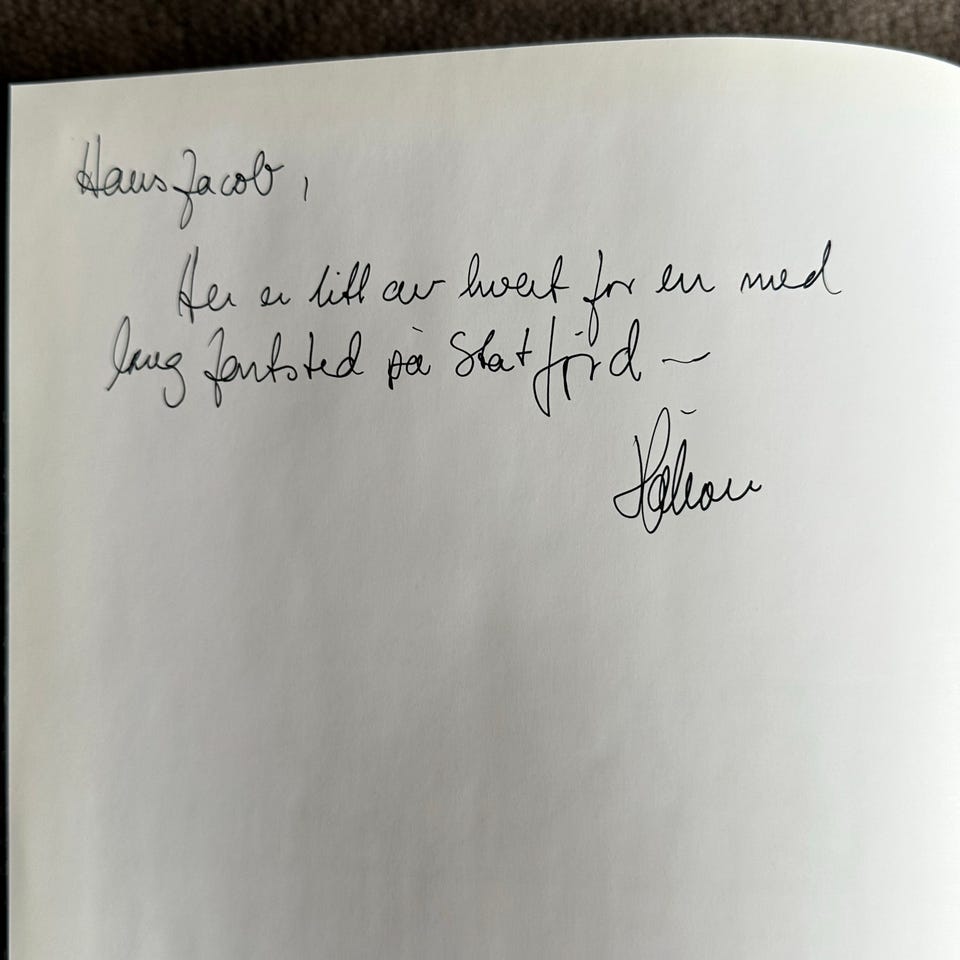 Hans Jacob,
Her er litt av hvert for en med
lang fartstid på Statfjord –
Håkon